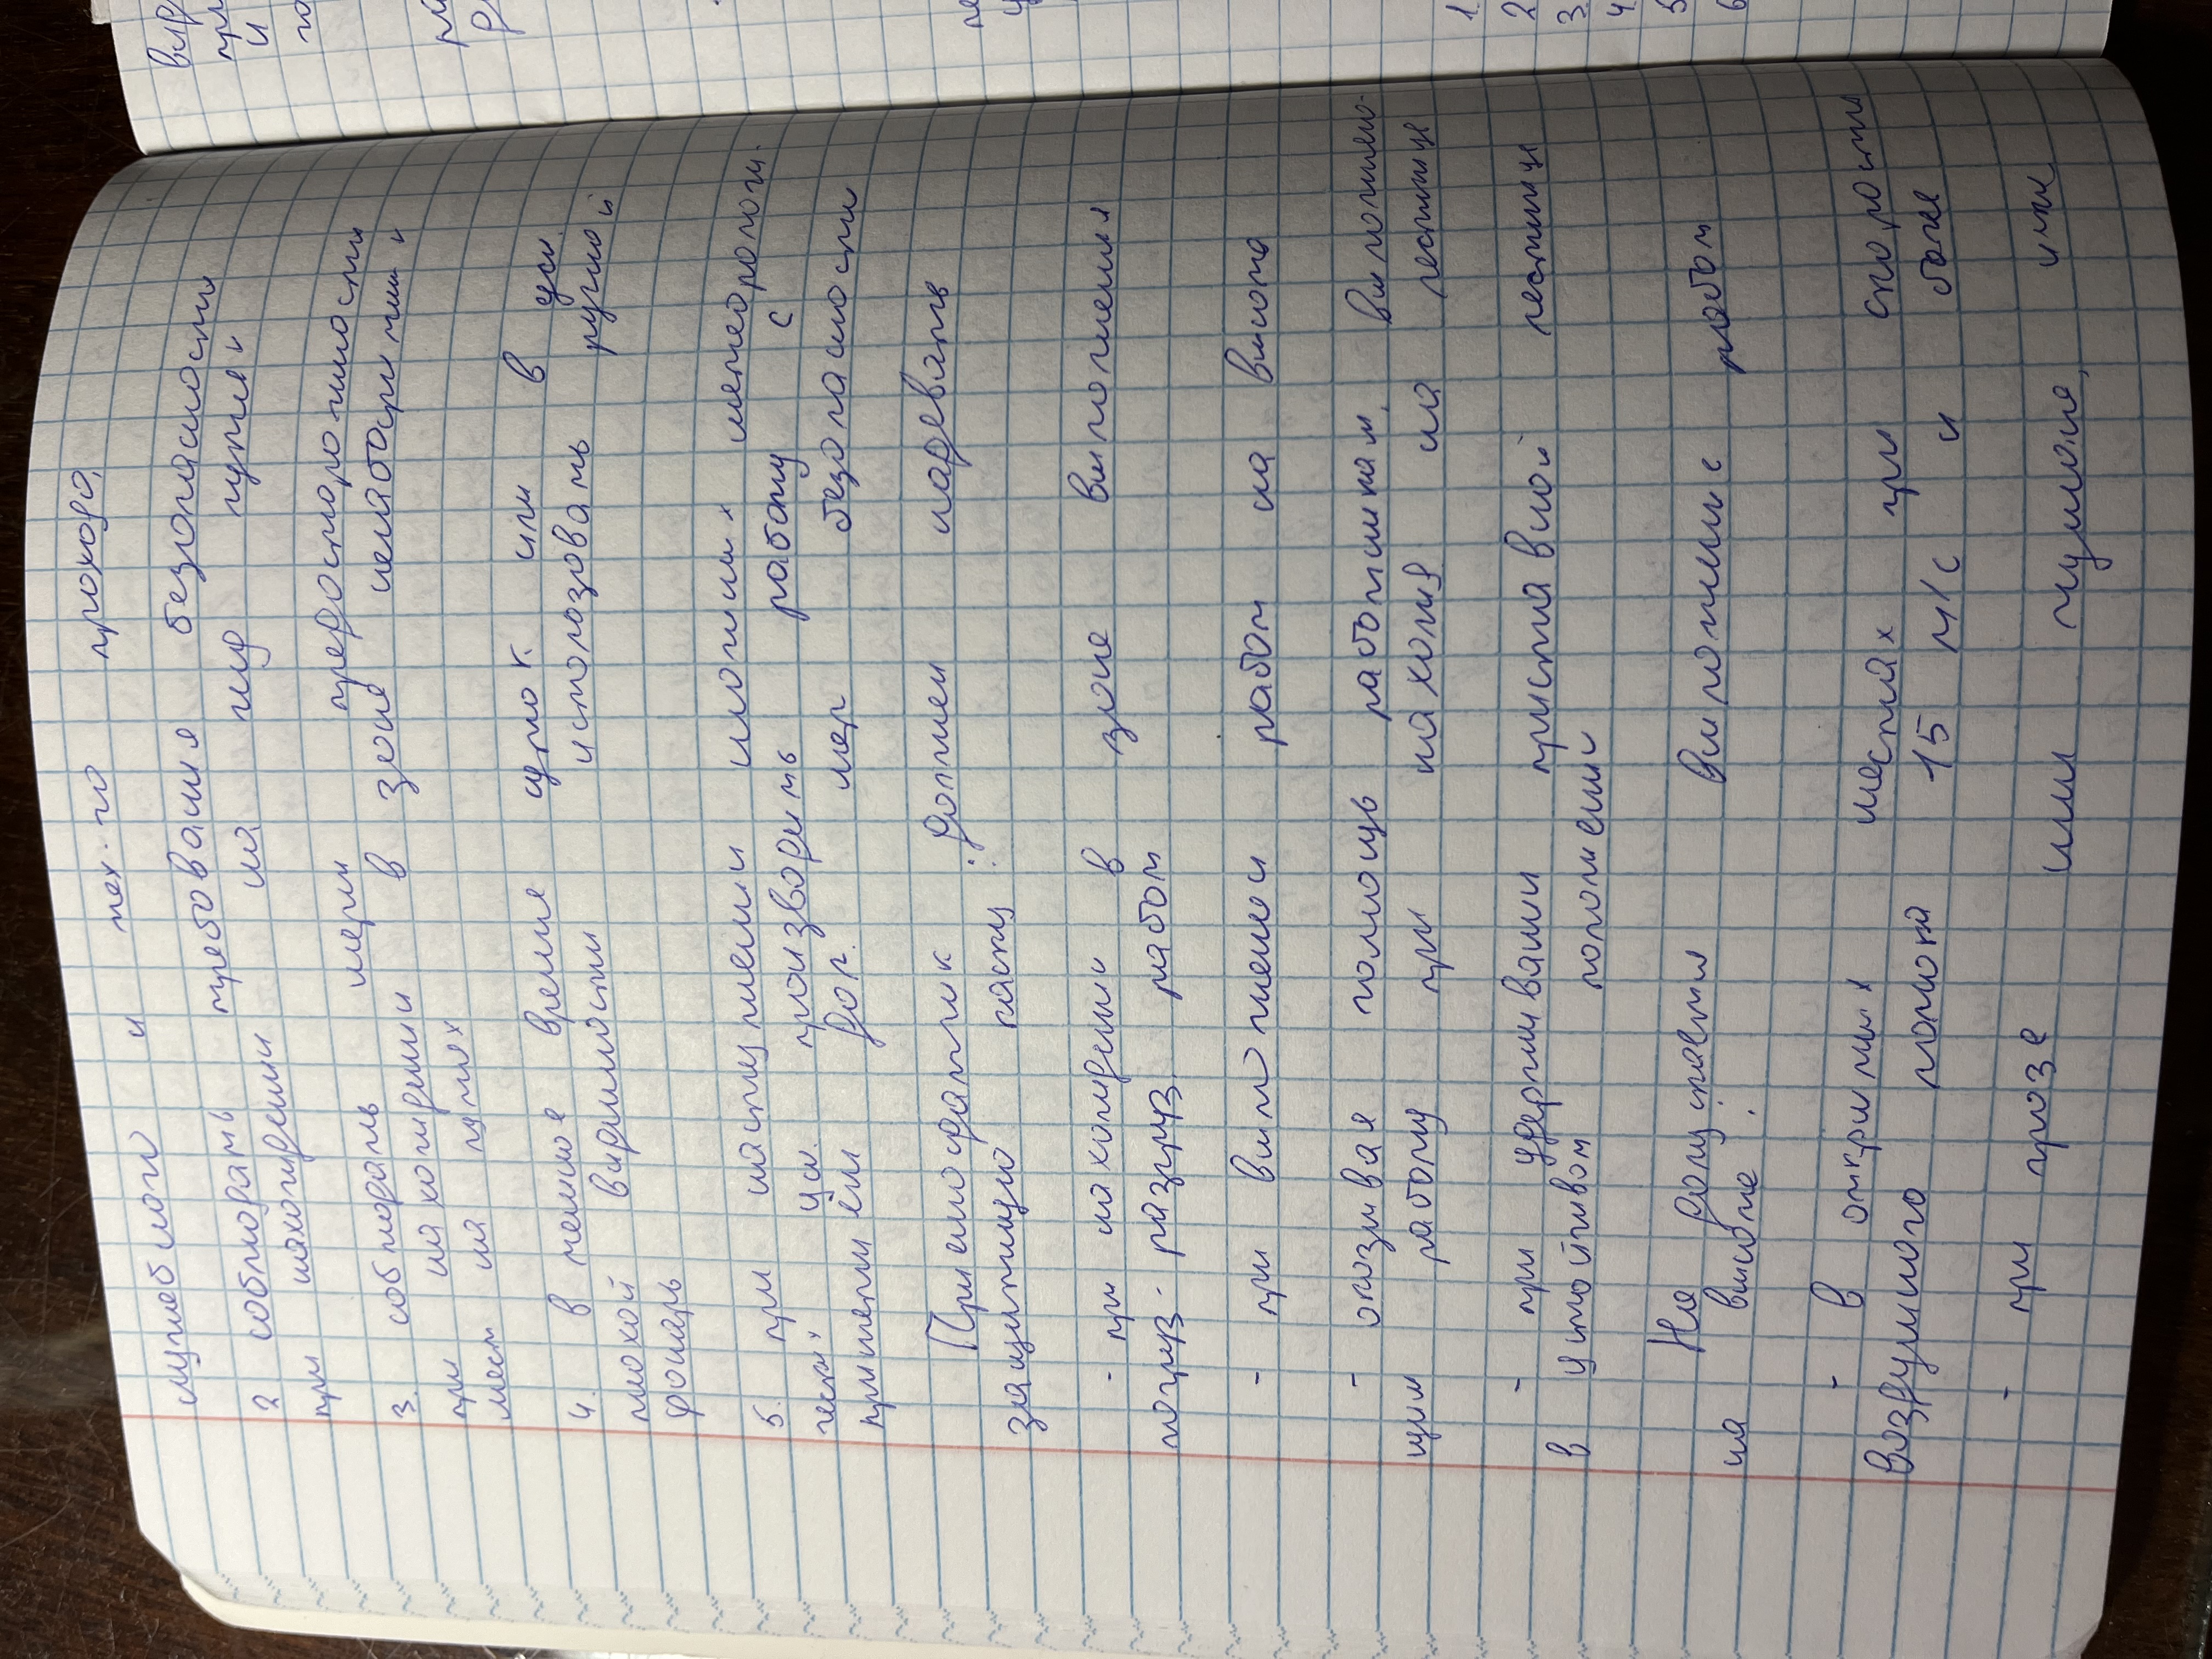 служебного и тех-го прохода,
2 соблюдать требования безопасности
при нахождении на жд путях
3. соблюдать меры предосторожности
при нахождении в зоне негабаритных
мест на путях
4. в темное время суток или в усл.
плохой видимости использовать ручной
фонарь
5. при наступлении сложных метеорологи-
ческих усл. производить работу с
принятием доп. мер безопасности
Приемосдатчик должен надевать
защитную каску:
- при нахождении в зоне выполнения
погруз-разгруз. работ
- при выполнении работ на высоте
- оказывая помощь работникам, выполняю-
щим работу при нахожд на лестнице
- при удерживании приставной лестницы
в устойчивом положении
Не допускается выполнение работ
на высоте:
- в открытых местах при скорости
воздушного потока 15 м/с и более
- при грозе или тумане, или